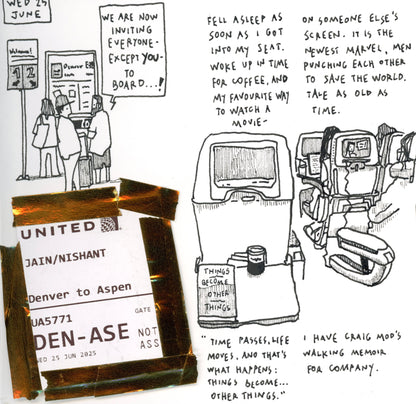 WED 25
JUNE
WE ARE NOW
INVITING
EVERYONE-
EXCEPT YOU-
TO
BOARD...!
1 2
FELL ASLEEP AS
SOON AS I GOT
INTO MY SEAT.
WOKE UP IN TIME
FOR COFFEE, AND
MY FAVOURITE WAY
TO WATCH A
MOVIE-
ON SOMEONE ELSE'S
SCREEN. IT IS THE
NEWEST MARVEL, MEN
PUNCHING EACH OTHER
TO SAVE THE WORLD.
TALE AS OLD AS
TIME.
UNITED
JAIN/NISHANT
Denver to Aspen
UA5771
GATE
DEN-ASE
NOT
ASS
WED 25 JUN 2025
THINGS
BECOME
OTHER
THINGS
"TIME PASSES, LIFE
MOVES, AND THAT'S
WHAT HAPPENS:
THINGS BECOME...
OTHER THINGS."
I HAVE CRAIG MOD'S
WALKING MEMOIR
FOR COMPANY.